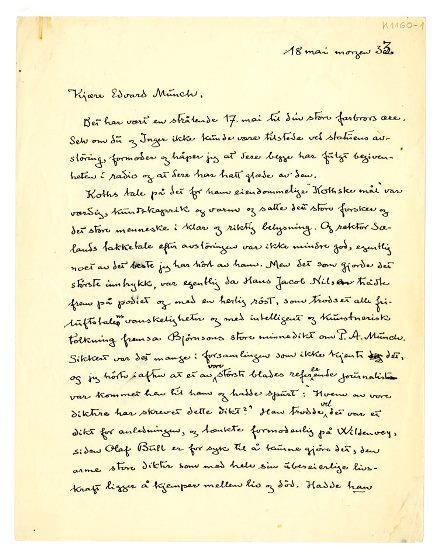 K1160-1
18 mai morgen 33.
Kjære Edvard Munch.
Det har vært en strålende 17. mai til din store farbrors ære.
Selv om du og Inger ikke kunde være tilstede ved statuens av-
sløring, formoder og håper jeg at dere begge har fulgt begiven-
heten i radio og at dere har hatt glæde av den.
Kohts tale på det for ham eiendommelige "Kohtske mål" var
verdig, kundskapsrik og varm og satte den store forsker og
det store menneske i klar og riktig belysning. Og rektor Sæ-
lands takketale efter avsløringen var ikke mindre god, egentlig
noet av det beste jeg har hört av ham. Men det som gjorde det
største inntrykk, var egentlig da Hans Jacob Nilsen trådte
frem på podiet og med en herlig röst, som trodset alle fri-
luftstalens vanskeligheter og med intelligent og kunstnerisk
tolkning fremsa Björnsons store minnedikt om P. A. Munch.
Sikkert var det mange i forsamlingen som ikke kjente det,
og jeg hörte iaftes at et av våre störste blades refererende journalist
var kommet hen til ham og hadde spurt: "Hvem av våre
diktere har skrevet dette dikt?" Han trodde, det var et
dikt for anledningen, og tænkte formodentlig på Wildenvey,
siden Olaf Bull er for syk til å kunne gjöre det, den
arme store dikter som med hele sin ubeseierlige livs-
kraft ligger å kjemper mellem liv og död. Hadde han